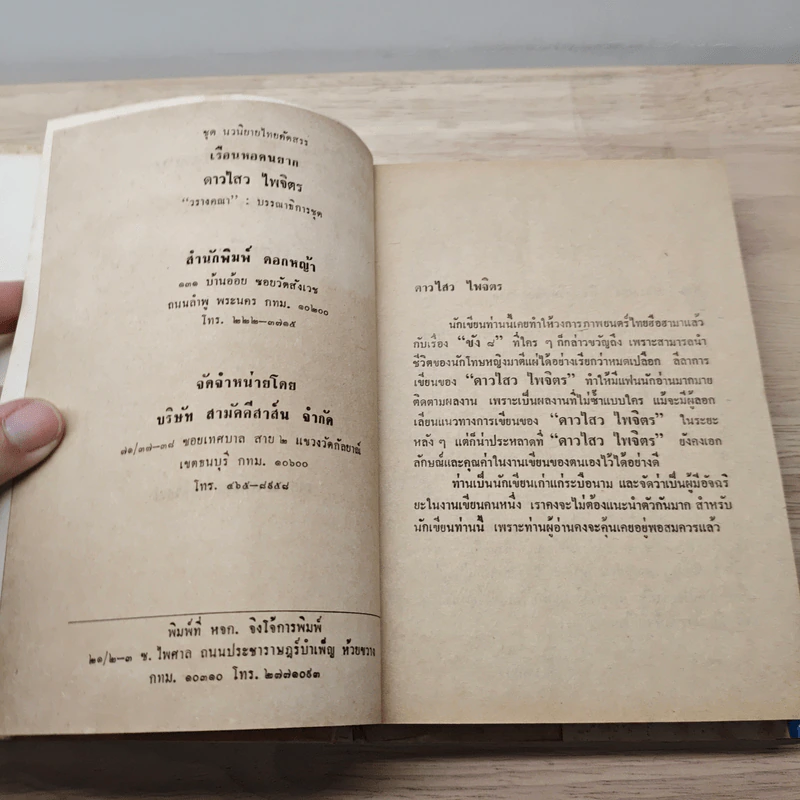 ชุด นวนิยายไทยคัดสรร
เรือนหอคนยาก
ดาวไสว ไพจิตร
"วรางคณา" : บรรณาธิการชุด
สำนักพิมพ์ ดอกหญ้า
๑๓๑ บ้านอ้อย ซอยวัดสังเวช
ถนนลำพู พระนคร กทม. ๑๐๒๐๐
โทร. ๒๒๒-๓๗๑๕
จัดจำหน่ายโดย
บริษัท สามัคคีสาส์น จำกัด
๗๑/๓๗-๓๘ ซอยเทศบาล สาย ๒ แขวงวัดกัลยาณ์
เขตธนบุรี กทม. ๑๐๖๐๐
โทร. ๔๖๕-๘๙๕๘
พิมพ์ที่ หจก. จิงโจ้การพิมพ์
๒๑/๒-๓ ซ. ไพศาล ถนนประชาราษฎร์บำเพ็ญ ห้วยขวาง
กทม. ๑๐๓๑๐ โทร. ๒๗๗๑๐๙๓
ดาวไสว ไพจิตร
นักเขียนท่านนี้เคยทำให้วงการภาพยนตร์ไทยฮือฮามาแล้ว
กับเรื่อง "ขัง ๘" ที่ใคร ๆ ก็กล่าวขวัญถึง เพราะสามารถนำ
ชีวิตของนักโทษหญิงมาตีแผ่ได้อย่างเรียกว่าหมดเปลือก ลีลาการ
เขียนของ "ดาวไสว ไพจิตร" ทำให้มีแฟนนักอ่านมากมาย
ติดตามผลงาน เพราะเป็นผลงานที่ไม่ซ้ำแบบใคร แม้จะมีผู้ลอก
เลียนแนวทางการเขียนของ "ดาวไสว ไพจิตร" ในระยะ
หลัง ๆ แต่ก็น่าประหลาดที่ "ดาวไสว ไพจิตร" ยังคงเอก
ลักษณ์และคุณค่าในงานเขียนของตนเองไว้ได้อย่างดี
ท่านเป็นนักเขียนเก่าแก่ระบือนาม และจัดว่าเป็นผู้มีอัจฉริ
ยะในงานเขียนคนหนึ่ง เราคงจะไม่ต้องแนะนำตัวกันมาก สำหรับ
นักเขียนท่านนี้ เพราะท่านผู้อ่านคงจะคุ้นเคยอยู่พอสมควรแล้ว